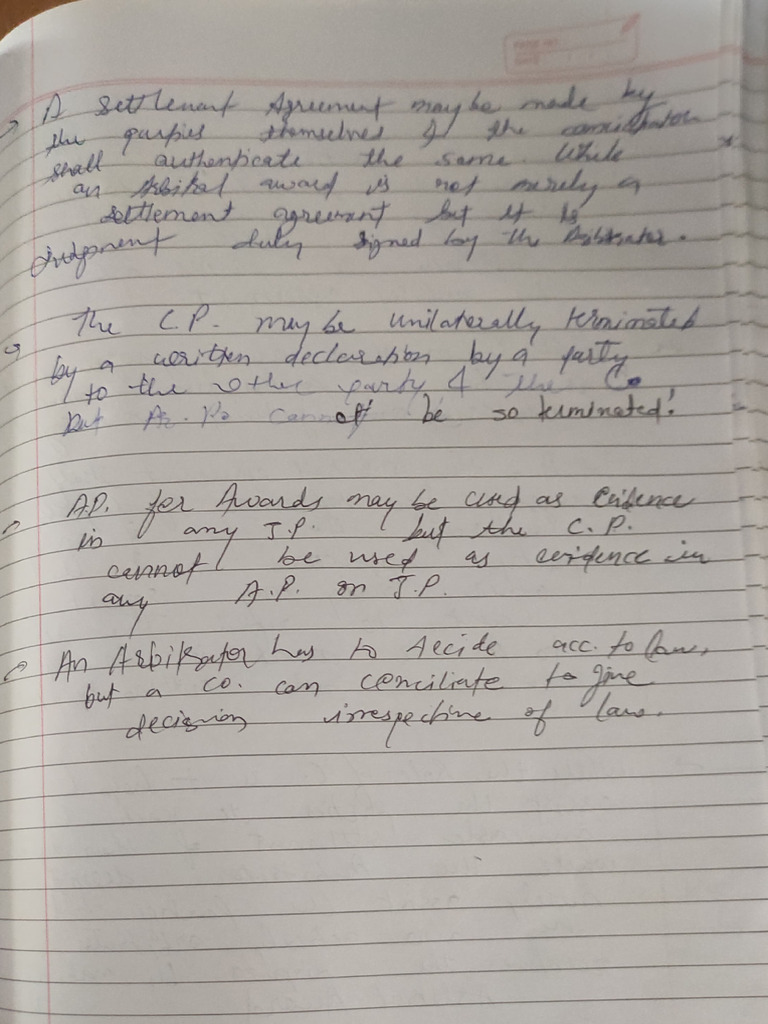 A settlement Agreement may be made by
the parties themselves & the conciliator
shall authenticate the same. While
an Arbitral award is not merely a
settlement agreement but it is
judgment duly signed by the Arbitrator.
The C.P. may be unilaterally terminated
by a written declaration by a party
to the other party & the Co
but Ar. Pr cannot be so terminated.
A.P. for Awards may be used as evidence
in any J.P. but the C.P.
cannot be used as evidence in
any A.P. or J.P.
An Arbitrator has to decide acc. to law,
but a co. can conciliate to give
decision irrespective of law.